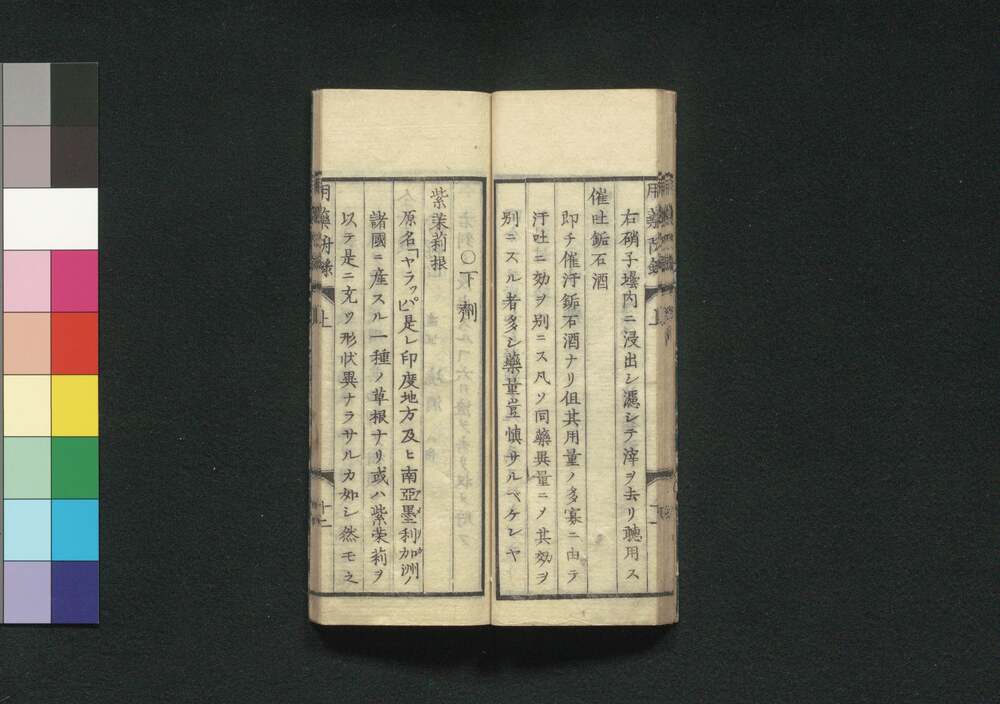 右硝子壜内ニ浸出シ濾シテ滓ヲ去リ聴用ス
催吐鉐石酒
即チ催汗鉐石酒ナリ但其用量ノ多寡ニ由テ
汗吐ニ効ヲ別ニス凡ソ同藥異量ニメ其効ヲ
別ニスル者多シ藥量豈慎サルベケンヤ
○下劑
紫茉莉根
原名「ヤラッパ」是レ印度地方及ヒ南亞墨利加洲ノ
諸國ニ産スル一種ノ草根ナリ或ハ紫茉莉ヲ
以テ是ニ充ツ形状異ナラサルカ如シ然モ之
用藥附録
上
十二